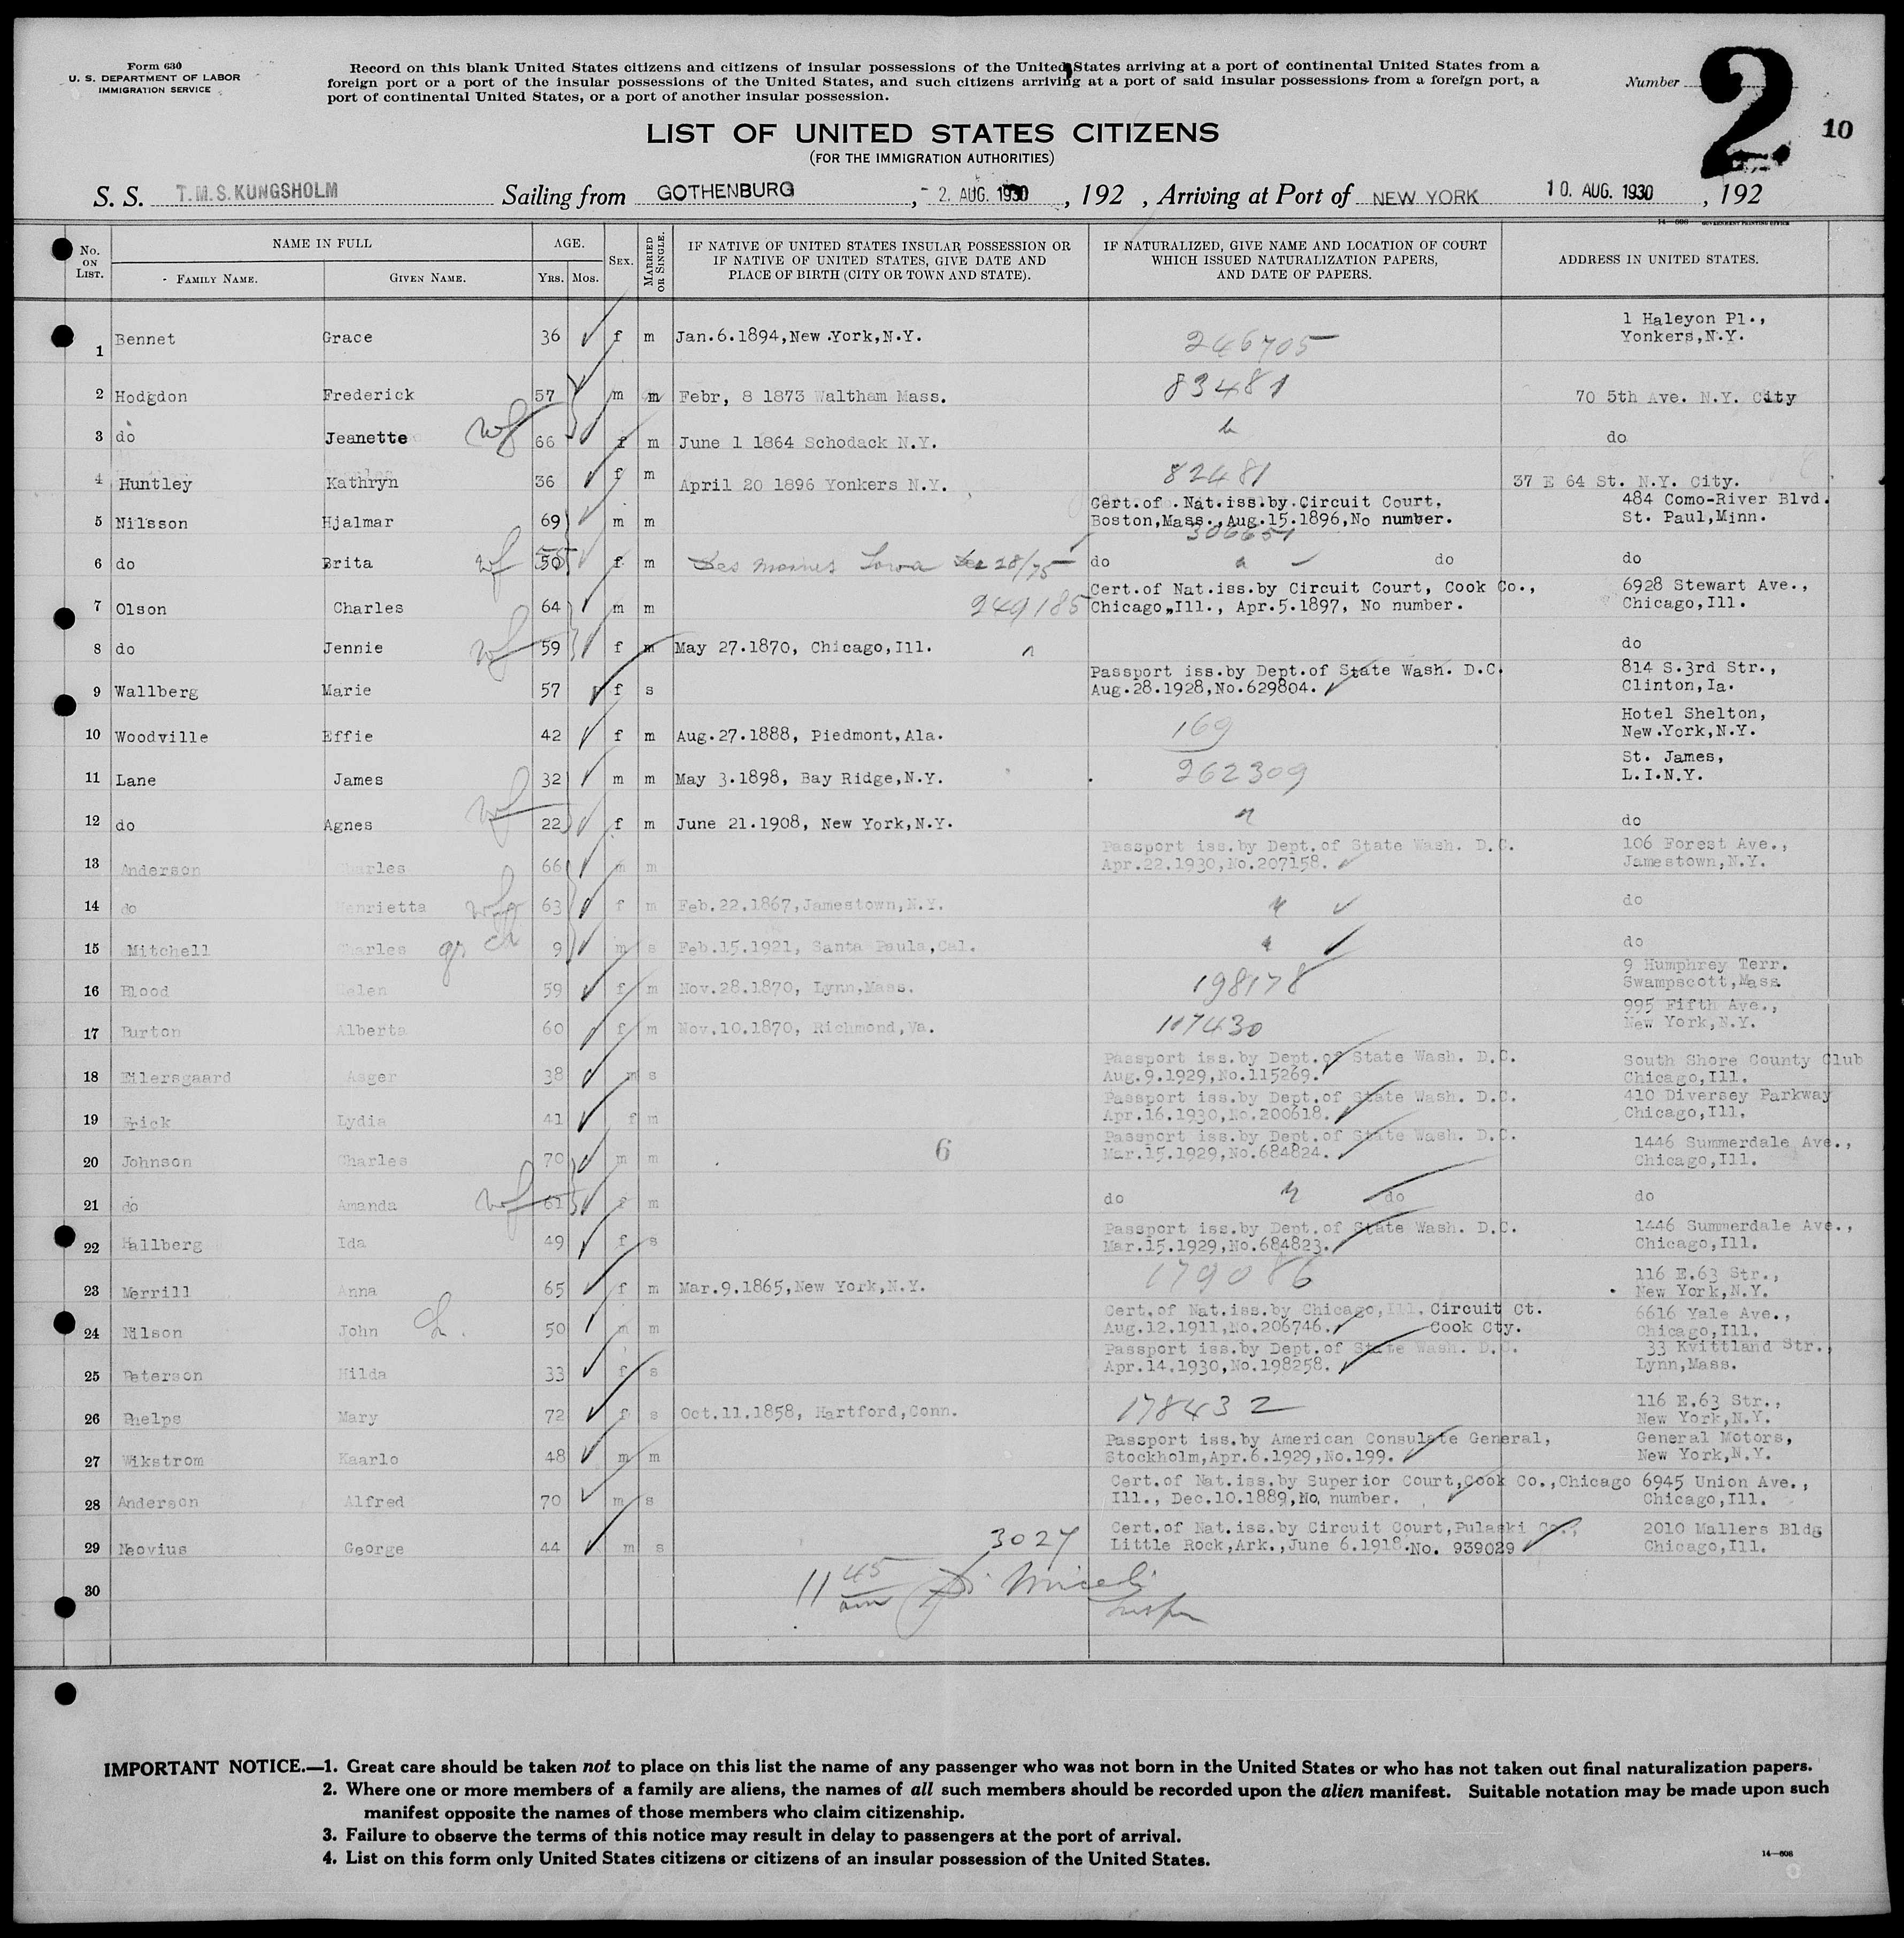 Form 630
U. S. DEPARTMENT OF LABOR
IMMIGRATION SERVICE
Record on this blank United States citizens and citizens of insular possessions of the United States arriving at a port of continental United States from a
foreign port or a port of the insular possessions of the United States, and such citizens arriving at a port of said insular possessions from a foreign port, a
port of continental United States, or a port of another insular possession.
Number 2
10
LIST OF UNITED STATES CITIZENS
(FOR THE IMMIGRATION AUTHORITIES)
S. S. T.M.S. KUNGSHOLM Sailing from GOTHENBURG , - 2. AUG. 1930 , 192 , Arriving at Port of NEW YORK 10. AUG. 1930 , 192
14—608 GOVERNMENT PRINTING OFFICE
No. ON LIST. NAME IN FULL FAMILY NAME. GIVEN NAME. AGE. YRS. MOS. SEX. MARRIED OR SINGLE. IF NATIVE OF UNITED STATES INSULAR POSSESSION OR IF NATIVE OF UNITED STATES, GIVE DATE AND PLACE OF BIRTH (CITY OR TOWN AND STATE). IF NATURALIZED, GIVE NAME AND LOCATION OF COURT WHICH ISSUED NATURALIZATION PAPERS, AND DATE OF PAPERS. ADDRESS IN UNITED STATES.
1 Bennet Grace 36 f m Jan.6.1894,New York,N.Y. 246705 1 Haleyon Pl., Yonkers,N.Y.
2 Hodgdon Frederick 57 m m Febr, 8 1873 Waltham Mass. 83481 70 5th Ave. N.Y. City
3 do Jeanette wf 66 f m June 1 1864 Schodack N.Y. " do
4 Huntley Kathryn 36 f m April 20 1896 Yonkers N.Y. 82481 37 E 64 St. N.Y. City.
5 Nilsson Hjalmar 69 m m Cert.of Nat.iss.by Circuit Court, Boston,Mass.,Aug.15.1896,No number. 306651 484 Como-River Blvd. St. Paul,Minn.
6 do Brita wf 50 55 f m Des Moines Iowa Dec 28/75 do " do do
7 Olson Charles 64 m m 249185 Cert.of Nat.iss.by Circuit Court, Cook Co., Chicago,Ill., Apr.5.1897, No number. 6928 Stewart Ave., Chicago,Ill.
8 do Jennie wf 59 f m May 27.1870, Chicago,Ill. " do
9 Wallberg Marie 57 f s Passport iss.by Dept.of State Wash. D.C. Aug.28.1928,No.629804. 814 S.3rd Str., Clinton,Ia.
10 Woodville Effie 42 f m Aug.27.1888, Piedmont,Ala. 169 Hotel Shelton, New York,N.Y.
11 Lane James 32 m m May 3.1898, Bay Ridge,N.Y. 262309 St. James, L.I.N.Y.
12 do Agnes wf 22 f m June 21.1908, New York,N.Y. " do
13 Anderson Charles 66 m m Passport iss.by Dept.of State Wash. D.C. Apr.22.1930,No.207158. 106 Forest Ave., Jamestown,N.Y.
14 do Henrietta wf 63 f m Feb.22.1867,Jamestown,N.Y. " do
15 Mitchell Charles gr ch 9 m s Feb.15.1921, Santa Paula,Cal. " do
16 Blood Helen 59 f m Nov.28.1870, Lynn,Mass. 198178 9 Humphrey Terr. Swampscott,Mass
17 Burton Alberta 60 f m Nov.10.1870, Richmond,Va. 117430 995 Fifth Ave., New York,N.Y.
18 Eilersgaard Asger 38 m s Passport iss.by Dept.of State Wash. D.C. Aug.9.1929,No.115269. South Shore County Club Chicago,Ill.
19 Frick Lydia 41 f m Passport iss.by Dept.of State Wash. D.C. Apr.16.1930,No.200618. 410 Diversey Parkway Chicago,Ill.
20 Johnson Charles 70 m m 6 Passport iss.by Dept.of State Wash. D.C. Mar.15.1929,No.684824. 1446 Summerdale Ave., Chicago,Ill.
21 do Amanda wf 61 f m do " do do
22 Hallberg Ida 49 f s Passport iss.by Dept.of State Wash. D.C. Mar.15.1929,No.684823. 1446 Summerdale Ave., Chicago,Ill.
23 Merrill Anna 65 f m Mar.9.1865,New York,N.Y. 179086 116 E.63 Str., New York,N.Y.
24 Nilson John Ch. 50 m m Cert.of Nat.iss.by Chicago,Ill. Circuit Ct. Aug.12.1911,No.206746. Cook Cty. 6616 Yale Ave., Chicago,Ill.
25 Peterson Hilda 33 f s Passport iss.by Dept.of State Wash. D.C. Apr.14.1930,No.198258. 33 Kvittland Str., Lynn,Mass.
26 Phelps Mary 72 f s Oct.11.1858, Hartford,Conn. 178432 116 E.63 Str., New York,N.Y.
27 Wikstrom Kaarlo 48 m m Passport iss.by American Consulate General, Stockholm,Apr.6.1929,No.199. General Motors, New York,N.Y.
28 Anderson Alfred 70 m s Cert.of Nat.iss.by Superior Court,Cook Co.,Chicago Ill., Dec.10.1889,No number. 6945 Union Ave., Chicago,Ill.
29 Neovius George 44 m s 3027 Cert.of Nat.iss.by Circuit Court,Pulaski Co., Little Rock,Ark.,June 6.1918.No. 939029 2010 Mallers Bldg Chicago,Ill.
30 11 45 am Miceli Inspr
IMPORTANT NOTICE.—1. Great care should be taken not to place on this list the name of any passenger who was not born in the United States or who has not taken out final naturalization papers.
2. Where one or more members of a family are aliens, the names of all such members should be recorded upon the alien manifest. Suitable notation may be made upon such
manifest opposite the names of those members who claim citizenship.
3. Failure to observe the terms of this notice may result in delay to passengers at the port of arrival.
4. List on this form only United States citizens or citizens of an insular possession of the United States.
14—608